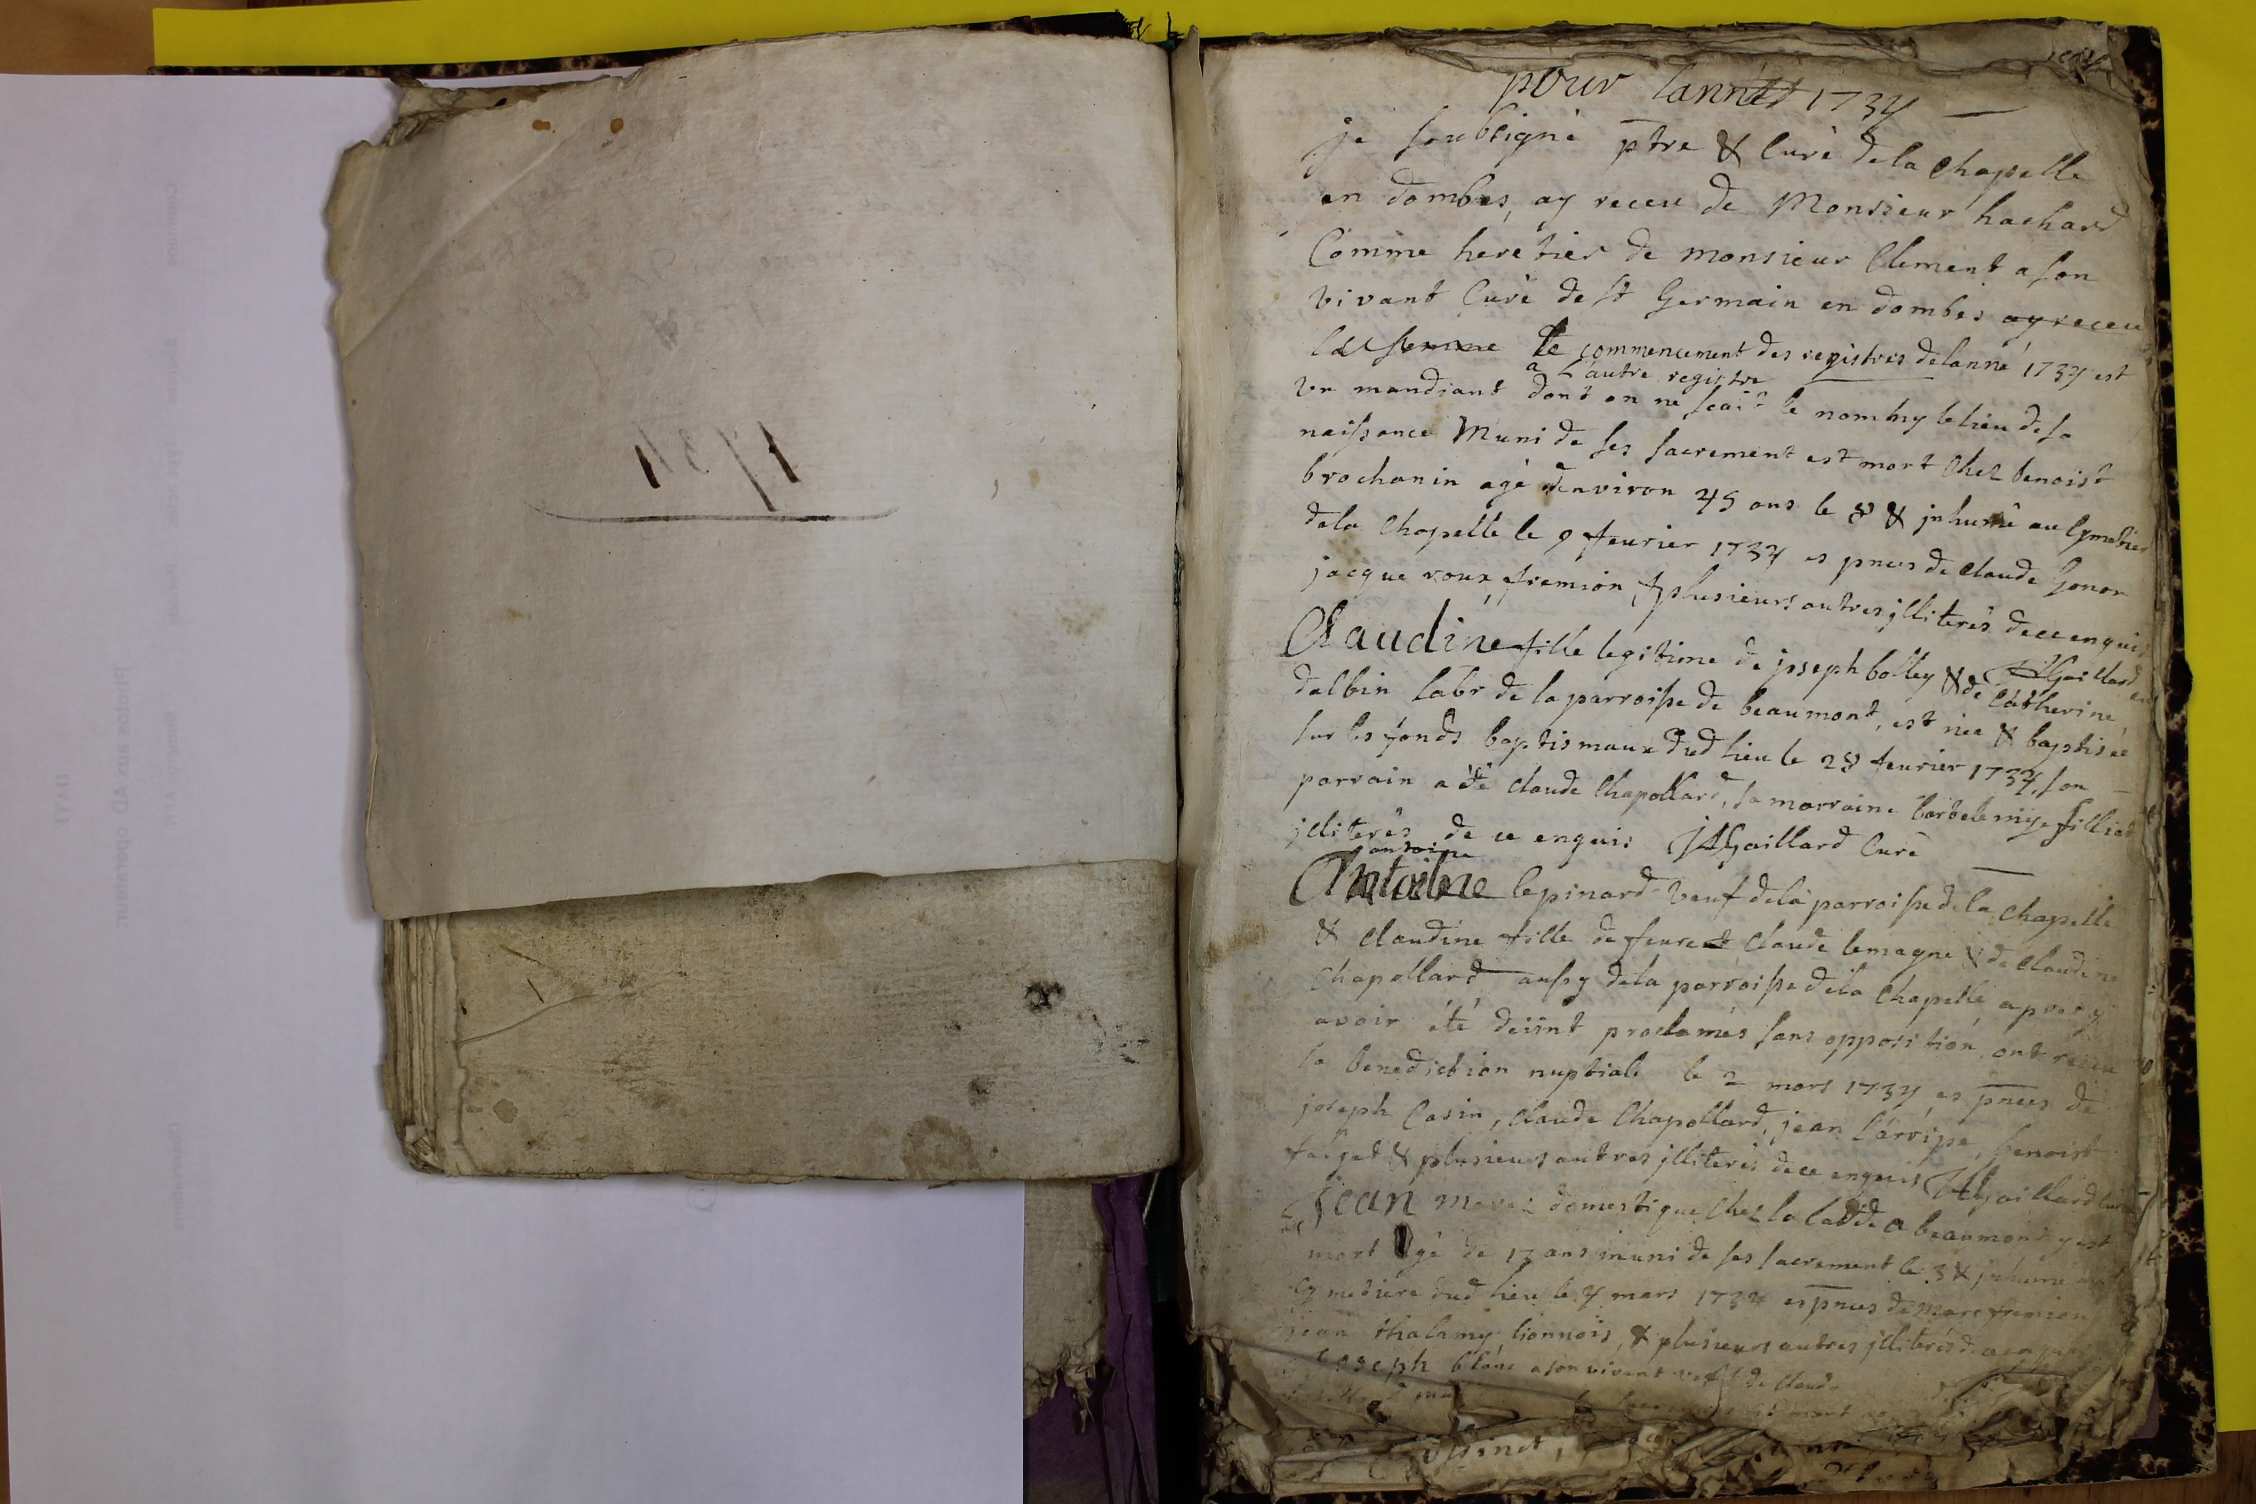 1734
pour lannéé 1734
je soubsigné ptre & Curé de la Chapelle
en dombes, ay receu de Monsieur hachard
Comme heretier de monsieur Clement a son
vivant Curé de st Germain en dombes ay receu
la somme le commencement des registres de lanné 1734 est
a L'autre registre
un mandiant dont on ne scait le nom ny le lieu de sa
naissance Muni de ses sacrement est mort Chez benoist
brochanin agé d'environ 45 ans le 8 & jnhumé au Cymetier
de la Chapelle le 9 feurier 1734 es pnces de claude Gonon
jacque roux, fremion, & plusieurs autres jlliterés de ce enquis
JAGaillard
Claudine fille legitime de joseph bolley & de Catherine
dalbin labr de la parroisse de beaumont, est née & baptisée
sur les fonds baptismaux dud lieu le 28 feurier 1734, son
parrain a été claude Chapollard, sa marraine bartelemye filliat
jlliterés de ce enquis JAGaillard Curé
antoine
Antoine lepinard veuf de la parroisse de la Chapelle
& claudine fille de feu claude lemagne & de claudine
Chapollard aussy de la parroisse de la Chapelle, apres y
avoir été deiint proclamés sans opposition, ont receu
la benediction nuptiale le 2 mars 1734 es pnces de
joseph Casin, claude Chapollard, jean Carripe, benoist
farget & plusieurs autres jlliterés de ce enquis JAGaillard Curé
jean domestique Chez la a beaumont y est
mort agé de 17 ans muni de ses sacrement le 3 & jnhumé au
Cymetiere dud lieu le 4 mars 1734 es pnces de marc fremion
jean thalamy lionnois, & plusieurs autres jlliterés de ce enquis
joseph blanc a son vivant veuf de claud